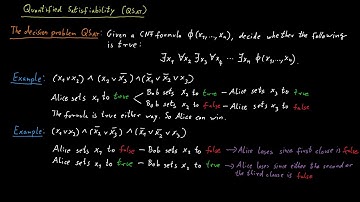 Quantified Satisfiability (QSAT)
The decision problem QSAT: Given a CNF formula ϕ(x₁,...,xₙ), decide whether the following is true:
∃x₁ ∀x₂ ∃x₃ ∀x₄ ... ∃xₙ ϕ(x₁,...,xₙ).
Example: (x₁∨x₂) ∧ (x₂∨x̄₃) ∧ (x̄₁∨x̄₂∨x₃)
Alice sets x₁ to true < Bob sets x₂ to true – Alice sets x₃ to true
Bob sets x₂ to false – Alice sets x₃ to false
The formula is true either way. So Alice can win.
Example: (x₁∨x₂) ∧ (x̄₂∨x₃) ∧ (x̄₁∨x̄₂∨x̄₃)
Alice sets x₁ to false – Bob sets x₂ to false → Alice loses since first clause is false
Alice sets x₁ to true – Bob sets x₂ to true → Alice loses since either the second or the third clause is false